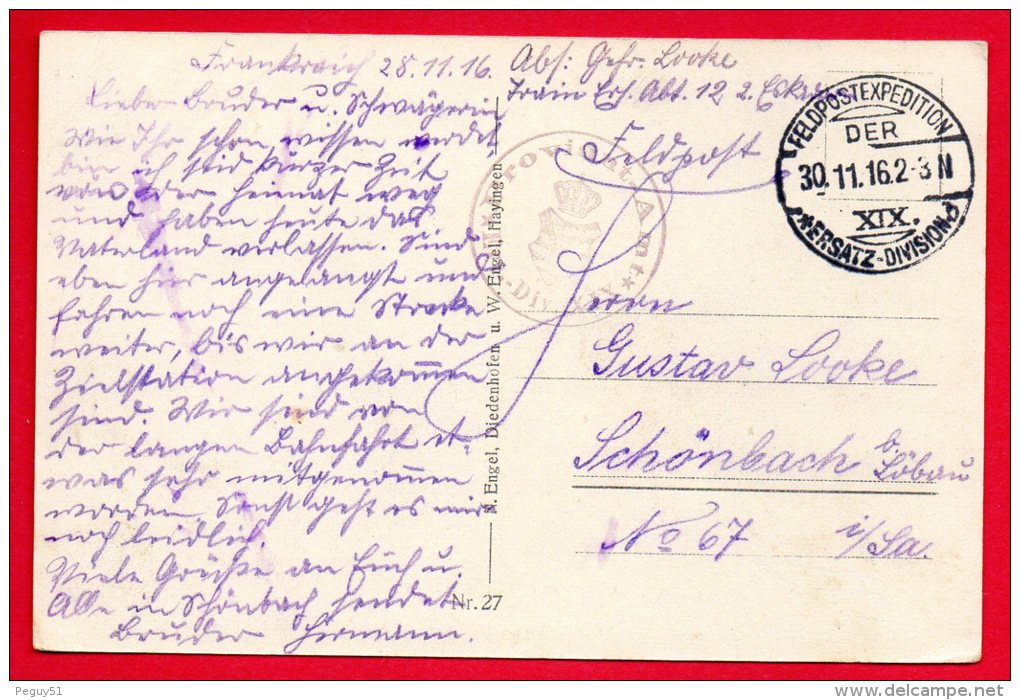 Frankreich 28.11.16.
Lieber Bruder u. Schwägerin
Wie Ihr schon wissen werdet
bin ich seid kurzer Zeit
von der Heimat weg
und haben heute das
Vaterland verlassen. Sind
eben hier angelangt und
fahren noch eine Strecke
weiter, bis wir an der
Zielstation angekommen
sind. Wir sind von
der langen Bahnfahrt et-
was sehr mitgenommen
worden. Sonst geht es mir
noch leidlich.
Viele Grüße an Euch u.
Alle in Schönbach sendet
Bruder Hermann.
Abs: Gefr. Looke
Train Ers. Abt. 12 2. Esk.
Feldpost
FELDPOSTEXPEDITION
DER
30.11.16.2-3 N
XIX.
*ERSATZ-DIVISION
Proviant-Amt
Div. XIX
N. Engel, Diedenhofen u. W. Engel, Hayingen
Herrn
Gustav Looke
Schönbach b. Löbau
No 67 i/Sa.
Nr. 27
Peguy51
delcampe.net